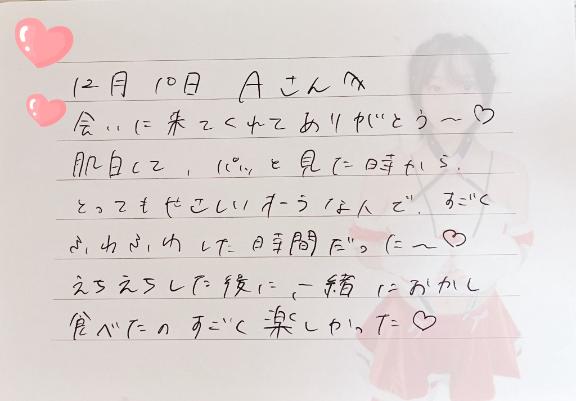 12月10日 Aさんへ
会いに来てくれてありがとう〜♡
肌白くて、パッと見た時から、
とってもやさしいそうな人で、すごく
ふわふわした時間だった〜♡
えちえちした後に、一緒におかし
食べたのすごく楽しかった♡